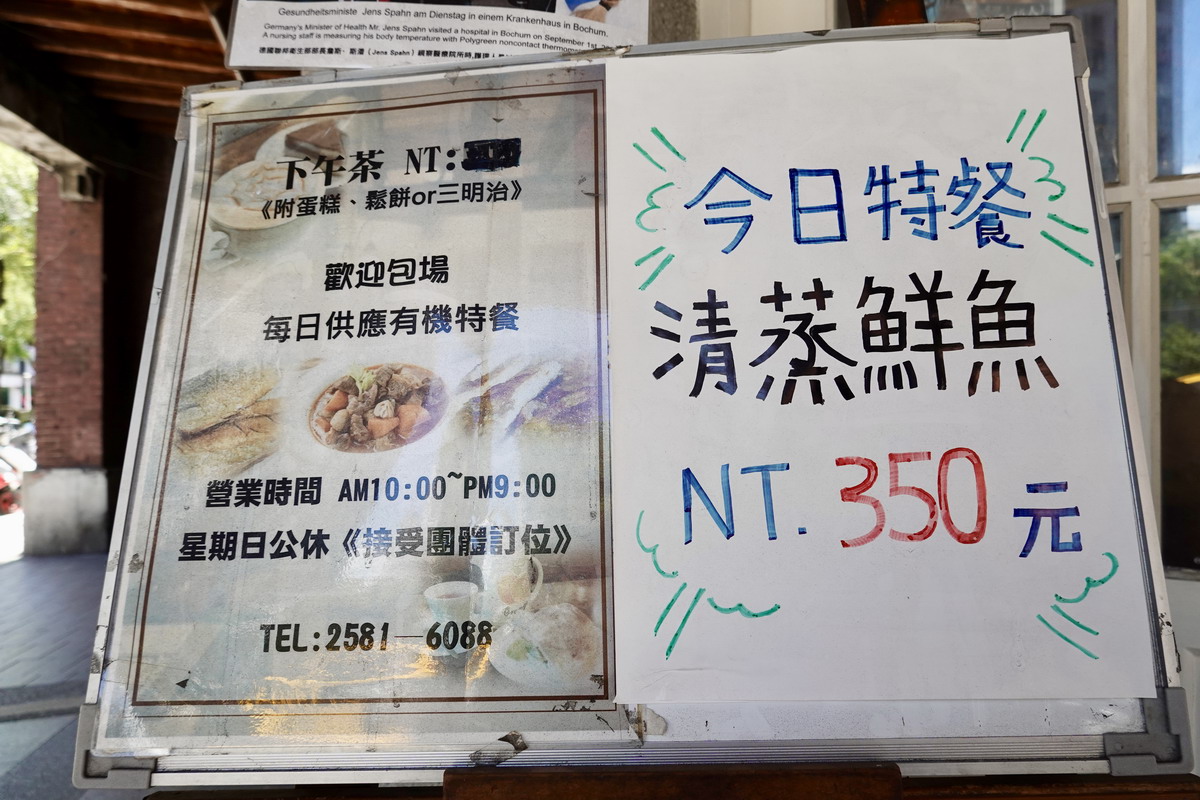 Gesundheitsministe Jens Spahn am Dienstag in einem Krankenhaus in Bochum.
Germany's Minister of Health Mr. Jens Spahn visited a hospital in Bochum on September 1st,
A nursing staff is measuring his body temperature with Polygreen noncontact
(Jens Spahn)
下午茶 NT:
《附蛋糕、鬆餅or三明治》
歡迎包場
每日供應有機特餐
營業時間 AM10:00~PM9:00
星期日公休《接受團體訂位》
TEL:2581—6088
今日特餐
清蒸鮮魚
NT. 350 元